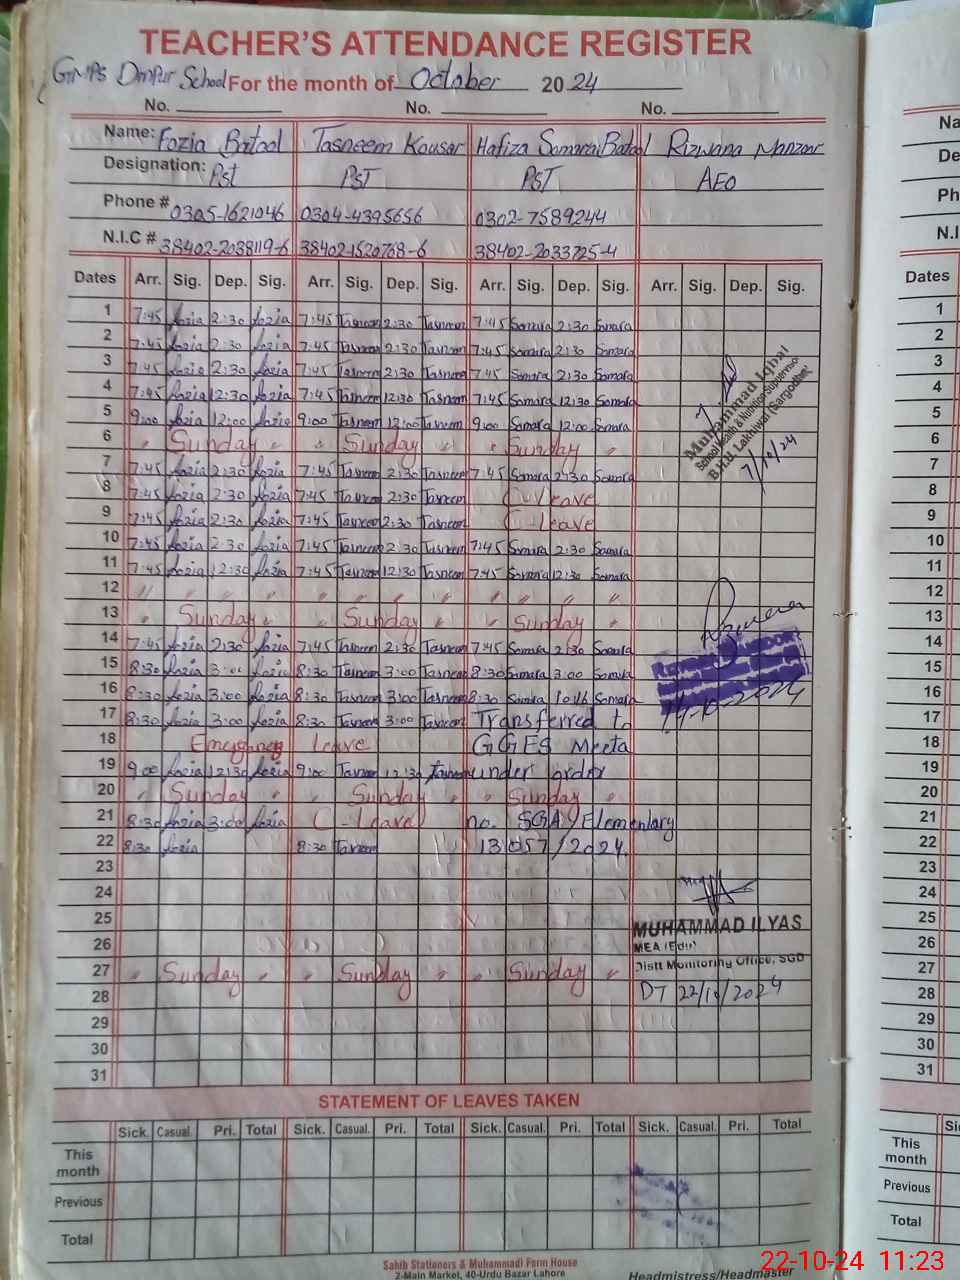 TEACHER'S ATTENDANCE REGISTER
GMPS Dinpur School For the month of October 2024
No. No. No.
Name: Fozia Batool Tasneem Kousar Hafiza Samara Batool Rizwana Manzoor
Designation: Pst PST PST AEO
Phone # 0305-1621046 0304-4395656 0302-7589244
N.I.C # 38402-2038119-6 38402-1520768-6 38402-2033725-4
Dates Arr. Sig. Dep. Sig. Arr. Sig. Dep. Sig. Arr. Sig. Dep. Sig. Arr. Sig. Dep. Sig.
1 7:45 Fozia 2:30 Fozia 7:45 Tasneem 2:30 Tasneem 7:45 Samara 2:30 Samara
2 7:45 Fozia 2:30 Fozia 7:45 Tasneem 2:30 Tasneem 7:45 Samara 2:30 Samara
3 7:45 Fozia 2:30 Fozia 7:45 Tasneem 2:30 Tasneem 7:45 Samara 2:30 Samara
4 7:45 Fozia 12:30 Fozia 7:45 Tasneem 12:30 Tasneem 7:45 Samara 12:30 Samara
5 9:00 Fozia 12:00 Fozia 9:00 Tasneem 12:00 Tasneem 9:00 Samara 12:00 Samara
6 " Sunday " " Sunday " " Sunday "
Muhammad Iqbal
School Health & Nutrition Supervisor
B.H.U. Lakhiwal (Sargodha)
7/10/24
7 7:45 Fozia 2:30 Fozia 7:45 Tasneem 2:30 Tasneem 7:45 Samara 2:30 Samara
8 7:45 Fozia 2:30 Fozia 7:45 Tasneem 2:30 Tasneem C-Leave
9 7:45 Fozia 2:30 Fozia 7:45 Tasneem 2:30 Tasneem C-Leave
10 7:45 Fozia 2:30 Fozia 7:45 Tasneem 2:30 Tasneem 7:45 Samara 2:30 Samara
11 7:45 Fozia 12:30 Fozia 7:45 Tasneem 12:30 Tasneem 7:45 Samara 12:30 Samara
12 " " " " " " " " " " " "
13 " Sunday " " Sunday " " Sunday "
14 7:45 Fozia 2:30 Fozia 7:45 Tasneem 2:30 Tasneem 7:45 Samara 2:30 Samara
15 8:30 Fozia 3:00 Fozia 8:30 Tasneem 3:00 Tasneem 8:30 Samara 3:00 Samara
16 8:30 Fozia 3:00 Fozia 8:30 Tasneem 3:00 Tasneem 8:30 Samara Samara
14-10-2024
17 8:30 Fozia 3:00 Fozia 8:30 Tasneem 3:00 Tasneem Transferred to
18 Emergency Leave GGES Meeta
19 9:00 Fozia 12:30 Fozia 9:00 Tasneem 12:30 Tasneem under order
20 " Sunday " " Sunday " " Sunday "
21 8:30 Fozia 3:00 Fozia C-Leave no. SGA/Elementary
22 8:30 Fozia 8:30 Tasneem 13057/2024
23
24
25
MUHAMMAD ILYAS
26
MEA (Edu)
Distt Monitoring Office, SGD
27 " Sunday " " Sunday " " Sunday "
DT 22/10/2024
28
29
30
31
STATEMENT OF LEAVES TAKEN
Sick. Casual. Pri. Total Sick. Casual. Pri. Total Sick. Casual. Pri. Total Sick. Casual. Pri. Total
This month
Previous
Total
Sahib Stationers & Muhammadi Form House
2-Main Market, 40-Urdu Bazar Lahore
Headmistress/Headmaster
22-10-24 11:23
Na
De
Ph
N.I
Dates
1
2
3
4
5
6
7
8
9
10
11
12
13
14
15
16
17
18
19
20
21
22
23
24
25
26
27
28
29
30
31
This month
Previous
Total